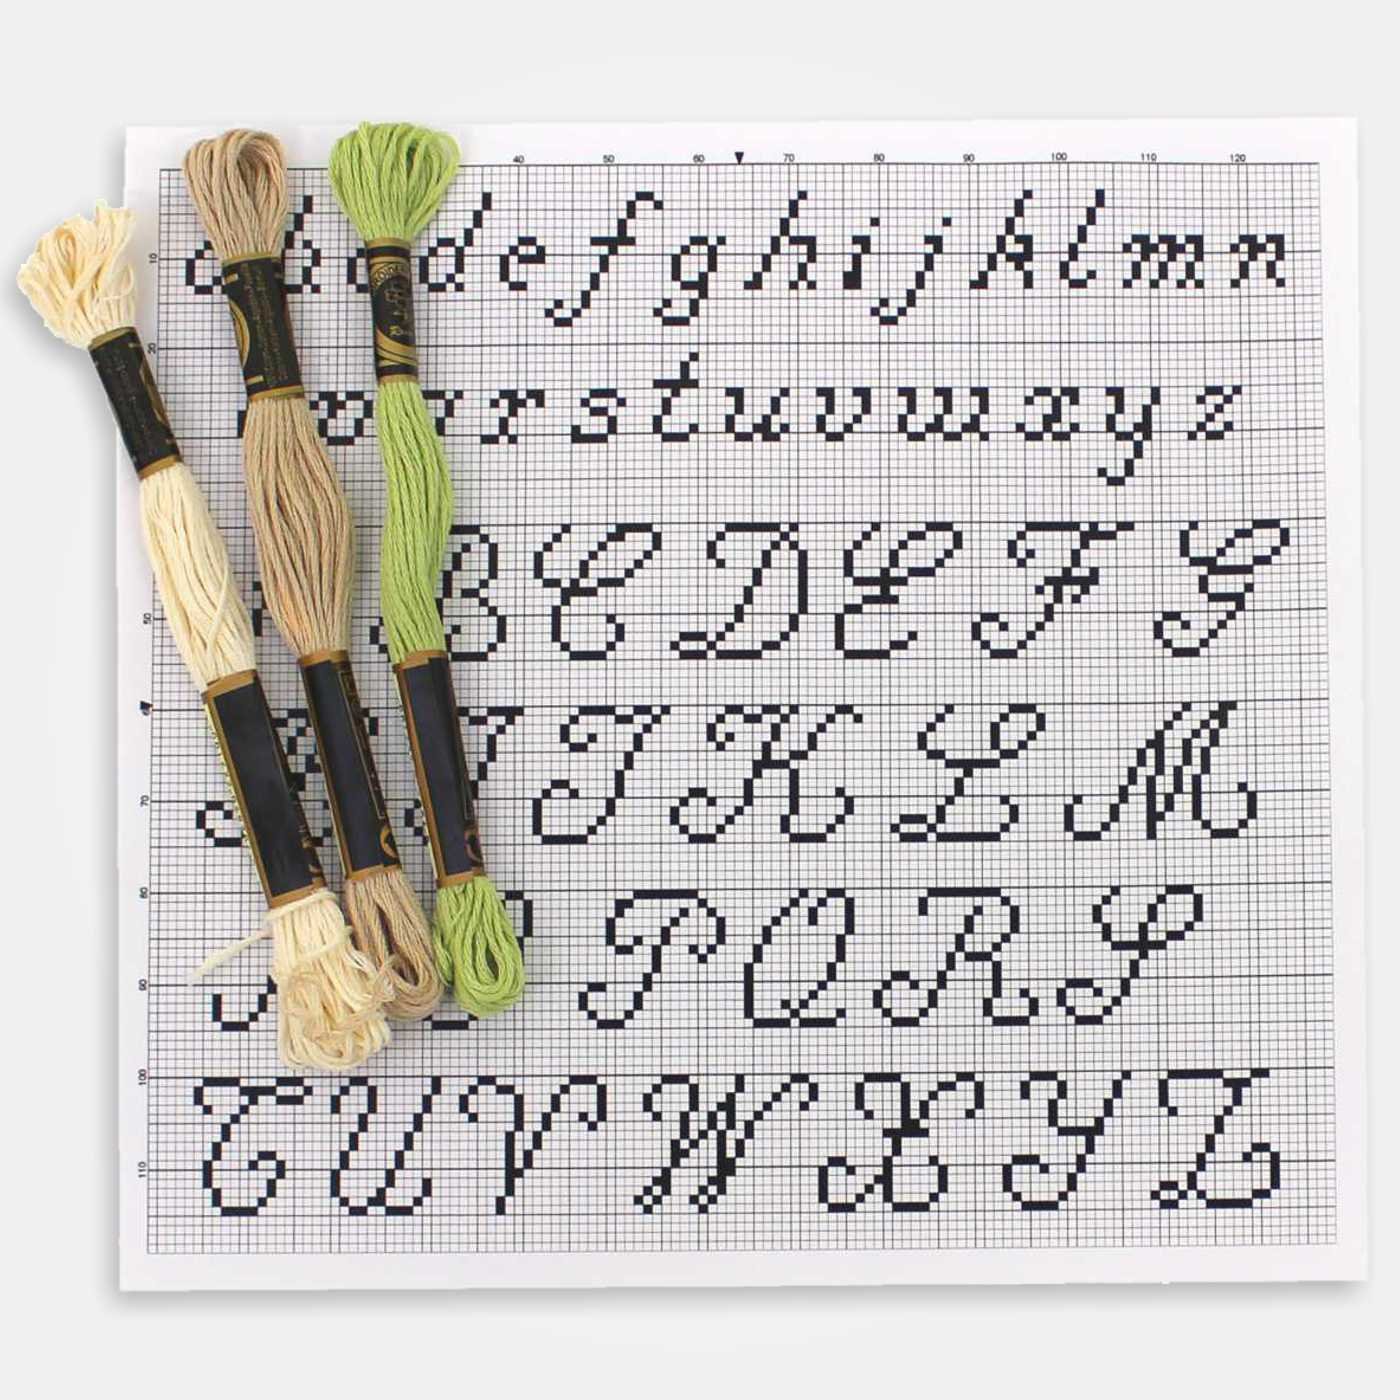 40 50 60 70 80 90 100 110 120
a b d e f g h i j k l m n
10
20
r s t u v w x y z
B C D E F G
50
60
J K L M
70
80
P Q R S
90
100
T U V W X Y Z
110